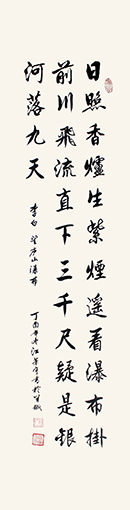 日照香爐生紫煙遙看瀑布掛
前川飛流直下三千尺疑是銀
河落九天
李白 望庐山瀑布
丁酉年冬江